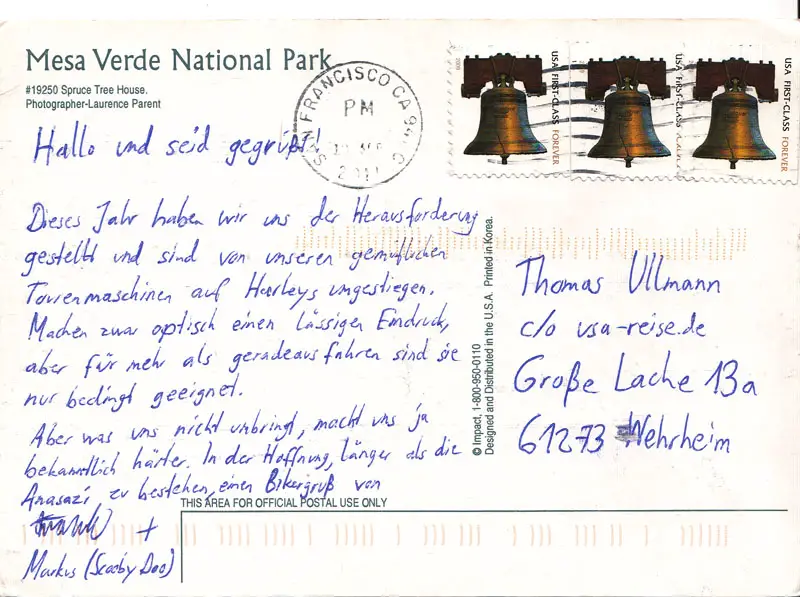 Mesa Verde National Park
#19250 Spruce Tree House.
Photographer-Laurence Parent
SAN FRANCISCO CA
PM
2011
USA FIRST-CLASS FOREVER
USA FIRST-CLASS FOREVER
USA FIRST-CLASS FOREVER
Hallo und seid gegrüßt!
Dieses Jahr haben wir uns der Herausforderung
gestellt und sind von unseren gemütlichen
Tourenmaschinen auf Harleys umgestiegen.
Machen zwar optisch einen lässigen Eindruck,
aber für mehr als geradeaus fahren sind sie
nur bedingt geeignet.
Aber was uns nicht umbringt, macht uns ja
bekanntlich härter. In der Hoffnung, länger als die
Anasazi zu bestehen, einen Bikergruß von
+
Markus (Scooby Doo)
© Impact, 1-800-950-0110
Designed and Distributed in the U.S.A. Printed in Korea.
Thomas Ullmann
c/o usa-reise.de
Große Lache 13a
61273 Wehrheim
THIS AREA FOR OFFICIAL POSTAL USE ONLY